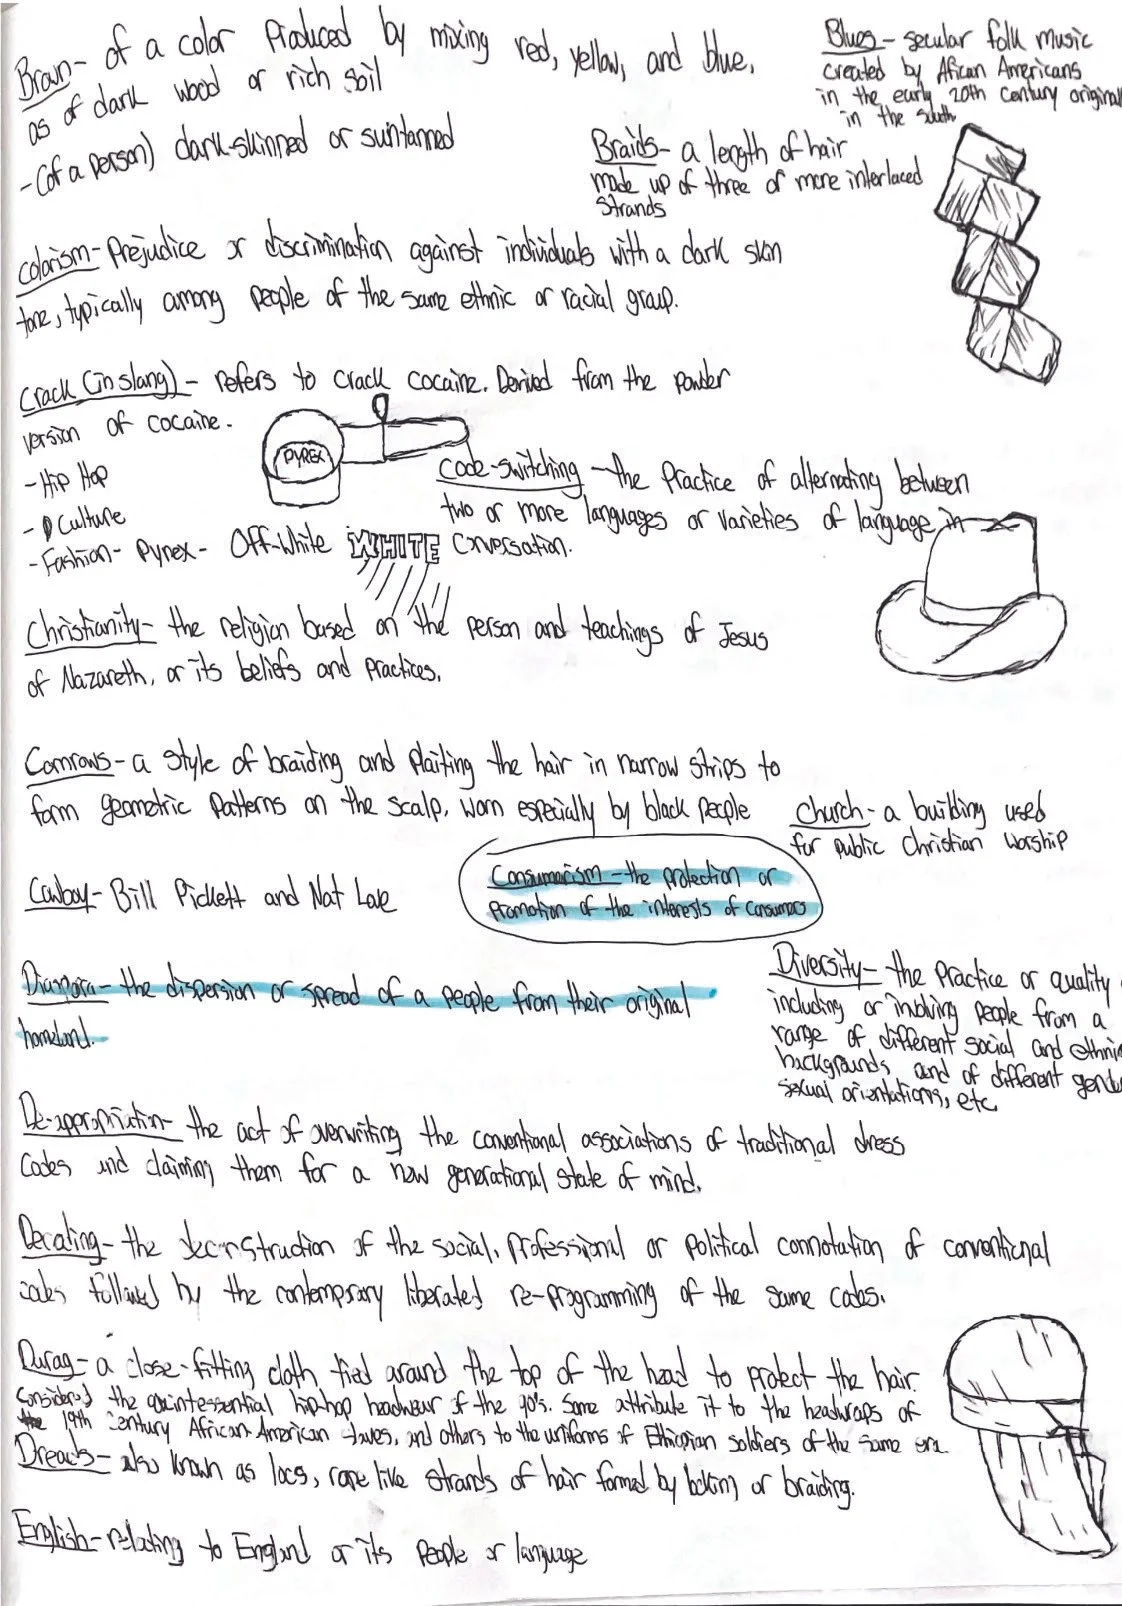 Brown- of a color Produced by mixing red, yellow, and blue,
as of dark wood or rich soil
-(of a person) dark-skinned or suntanned
Blues- secular folk music
created by African Americans
in the early 20th Century original
in the south
Braids- a length of hair
made up of three or more interlaced
Strands
colorism- Prejudice or discrimination against individuals with a dark skin
tone, typically among people of the same ethnic or racial group.
Crack (in slang) - refers to crack cocaine. Derived from the powder
version of cocaine.
- Hip Hop
- Culture
- Fashion- Pyrex- Off-White WHITE
PYREX
Code-switching - the Practice of alternating between
two or more languages or varieties of language in
Conversation.
Christianity- the religion based on the person and teachings of Jesus
of Nazareth, or its beliefs and practices.
Cornrows- a style of braiding and plaiting the hair in narrow strips to
form geometric patterns on the scalp, worn especially by black people
church- a building used
for public Christian worship
Cowboy- Bill Pickett and Nat Love
Consumerism - the protection or
promotion of the interests of consumers
Diaspora- the dispersion or spread of a people from their original
homeland.
Diversity- the practice or quality
including or involving people from a
range of different social and ethnic
backgrounds and of different gende
sexual orientations, etc
De-appropriation- the act of overwriting the conventional associations of traditional dress
Codes and claiming them for a new generational state of mind.
Decoding- the deconstruction of the social, professional or political connotation of conventional
codes followed by the contemporary liberated re-programming of the same codes.
Durag- a close-fitting cloth tied around the top of the head to protect the hair.
Considered the quintessential hip-hop headwear of the 90's. Some attribute it to the headwraps of
the 19th century African American slaves, and others to the uniforms of Ethiopian soldiers of the same era.
Dreads- also known as locs, rope like strands of hair formed by or braiding.
English- relating to England or its people or language